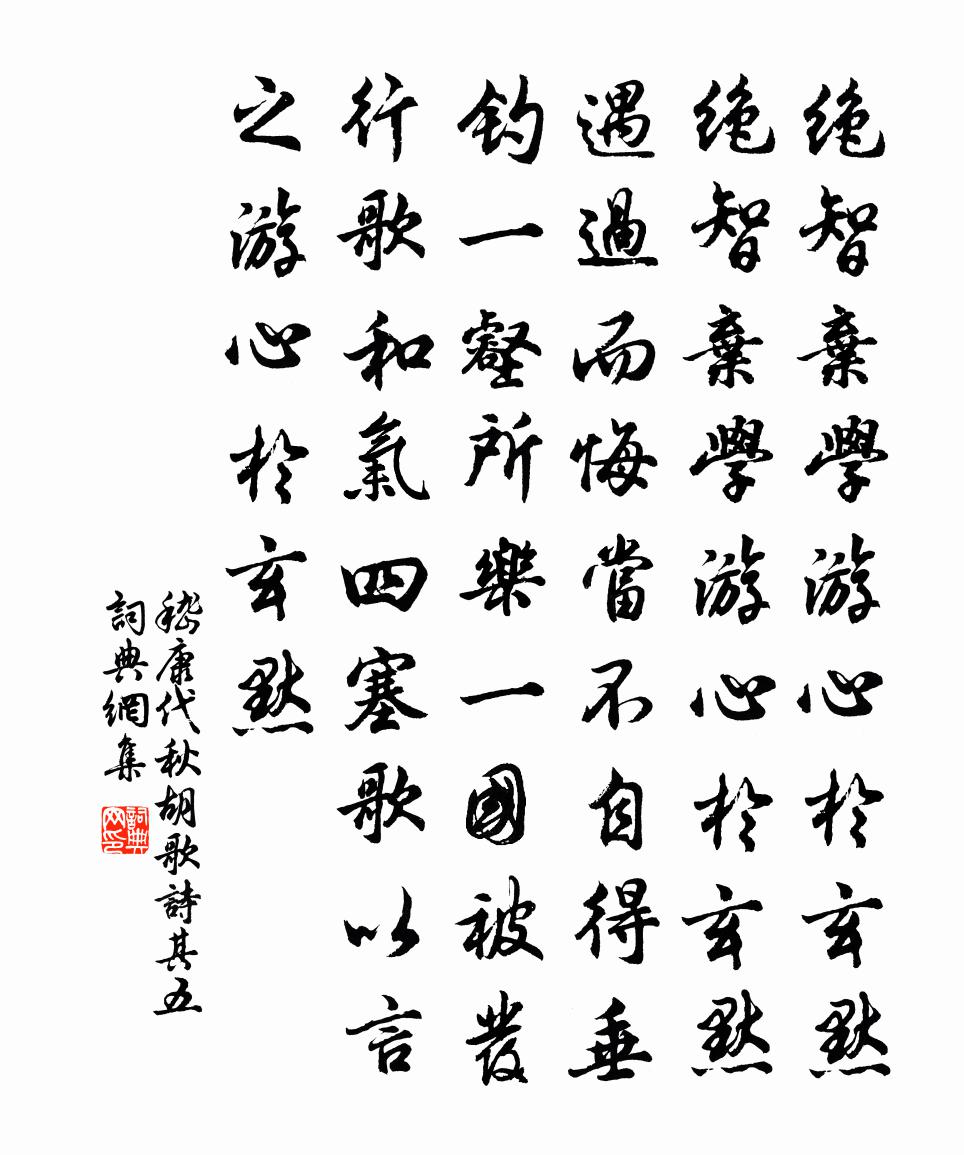 絶智棄學游心於玄默
絶智棄學游心於玄默
遇過而悔當不自得垂
釣一壑所樂一國被發
行歌和氣四塞歌以言
之游心於玄默
嵇康代秋胡歌詩其五
詞典網集
詞典网印